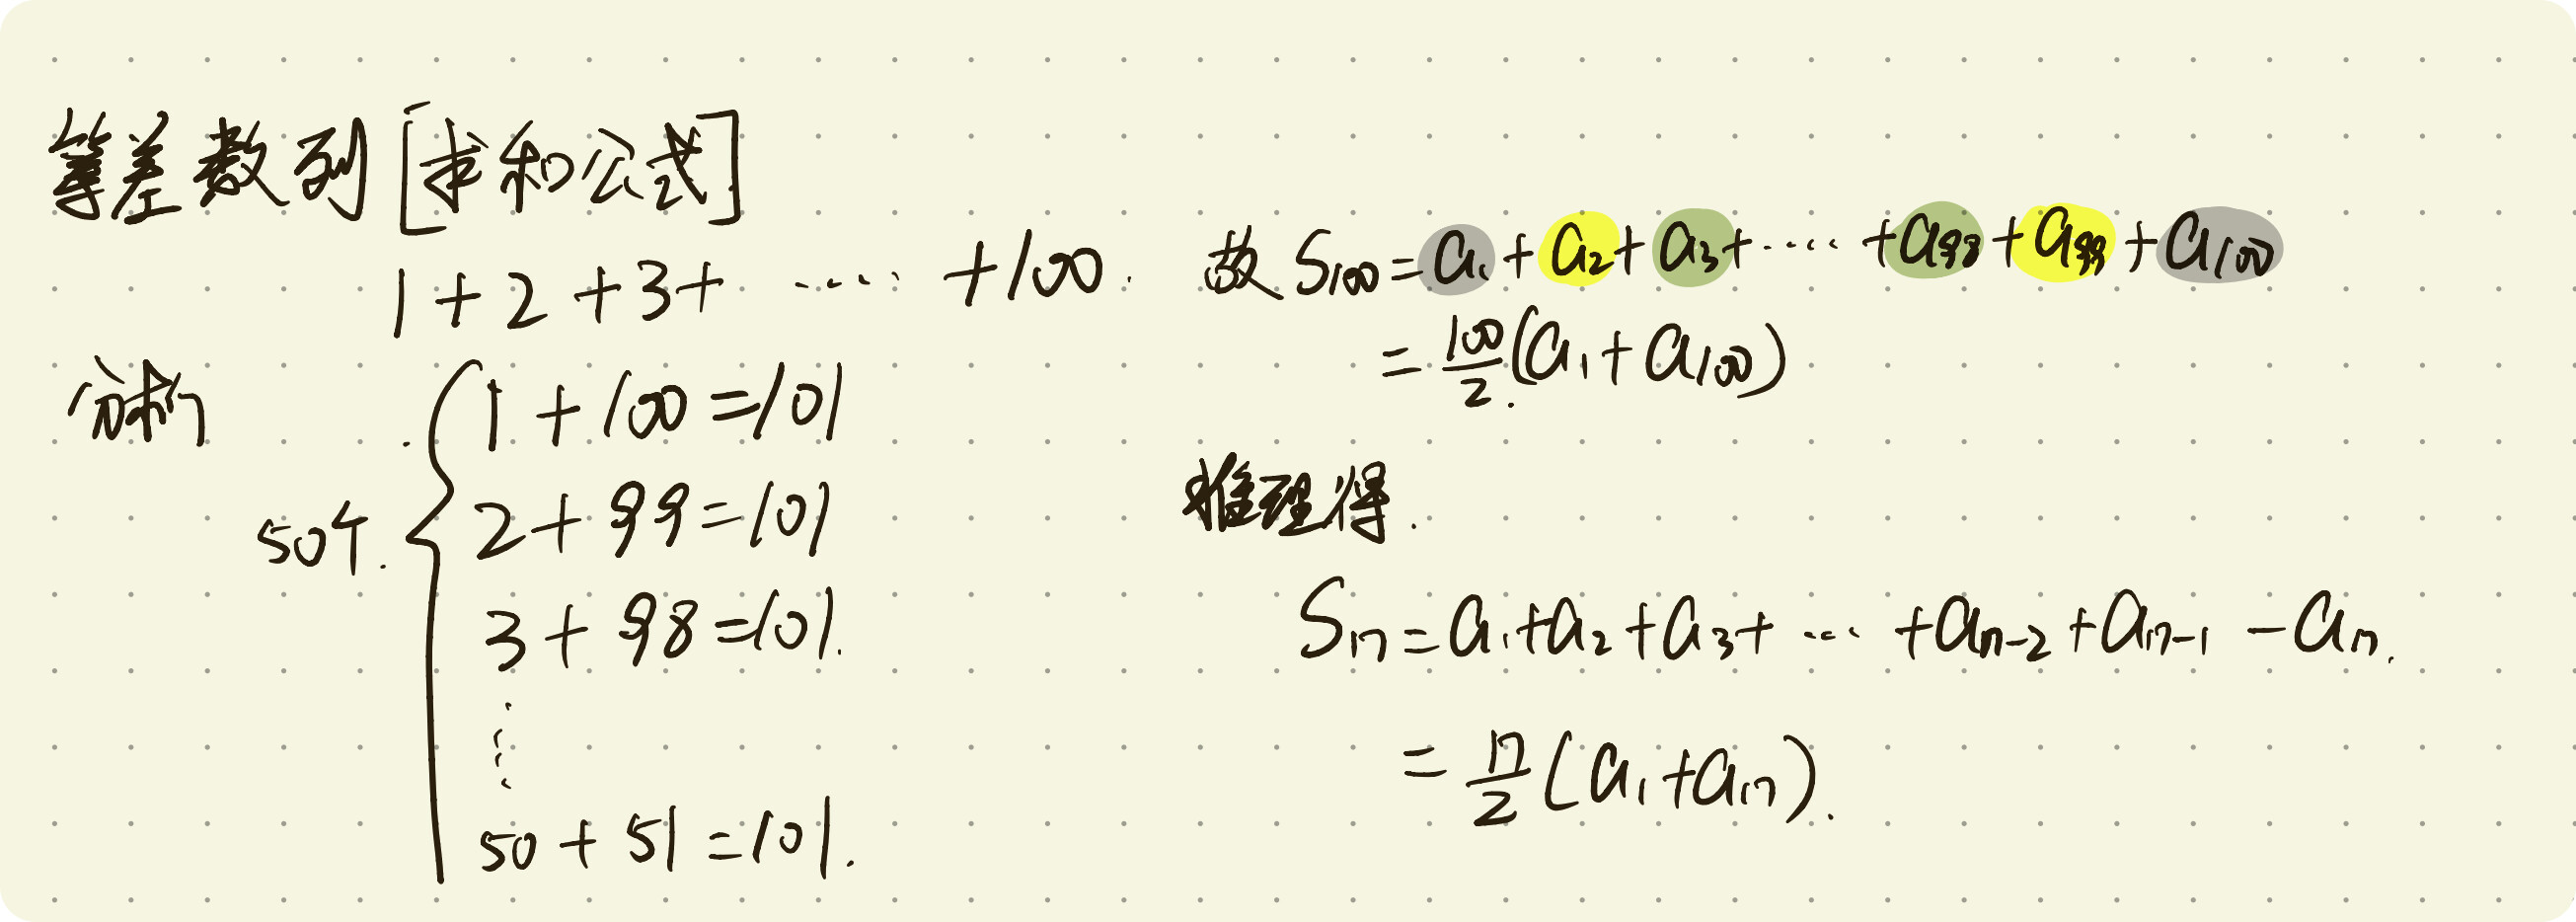 等差数列[求和公式]
1+2+3+ …… +100.
分析
50个.
1+100=101
2+99=101
3+98=101.
⋮
50+51=101.
故 S₁₀₀=a₁+a₂+a₃+……+a₉₈+a₉₉+a₁₀₀
=100/2(a₁+a₁₀₀)
推理得.
Sₙ=a₁+a₂+a₃+……+aₙ₋₂+aₙ₋₁-aₙ.
=n/2(a₁+aₙ).